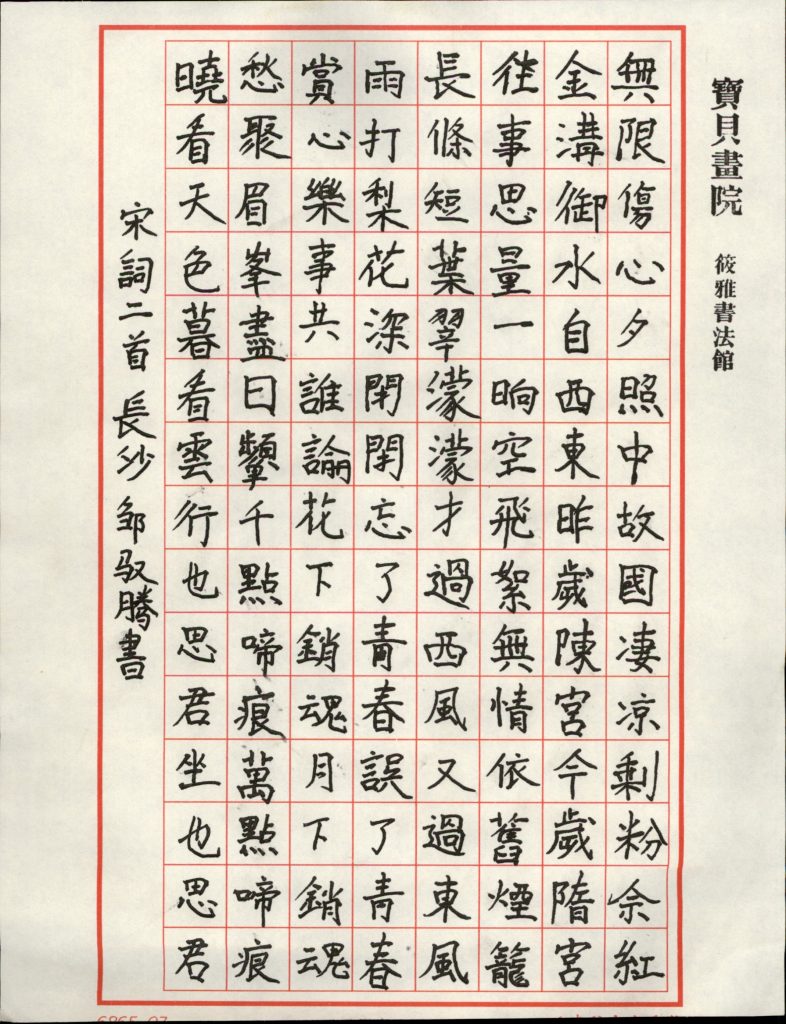 寶貝畫院 筱雅書法館
無限傷心夕照中故國凄凉剩粉佘紅
金溝御水自西東昨歲陳宮今歲隋宮
往事思量一晌空飛絮無情依舊煙籠
長條短葉翠濛濛才過西風又過東風
雨打梨花深閉閉忘了青春誤了青春
賞心樂事共誰論花下銷魂月下銷魂
愁聚眉峯盡日顰千點啼痕萬點啼痕
曉看天色暮看雲行也思君坐也思君
宋詞二首 長沙 邹驭腾書